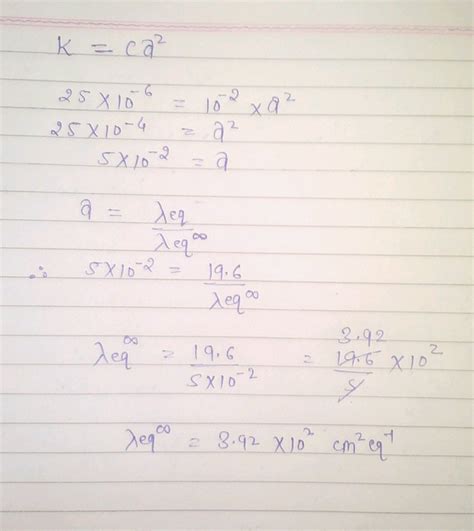 K = ca²
25 × 10⁻⁶ = 10⁻² × a²
25 × 10⁻⁴ = a²
5 × 10⁻² = a
a = λeq / λeq^∞
∴ 5 × 10⁻² = 19.6 / λeq^∞
λeq^∞ = 19.6 / 5 × 10⁻² = 3.92 19.6 / 5 × 10²
λeq^∞ = 3.92 × 10² cm² eq⁻¹